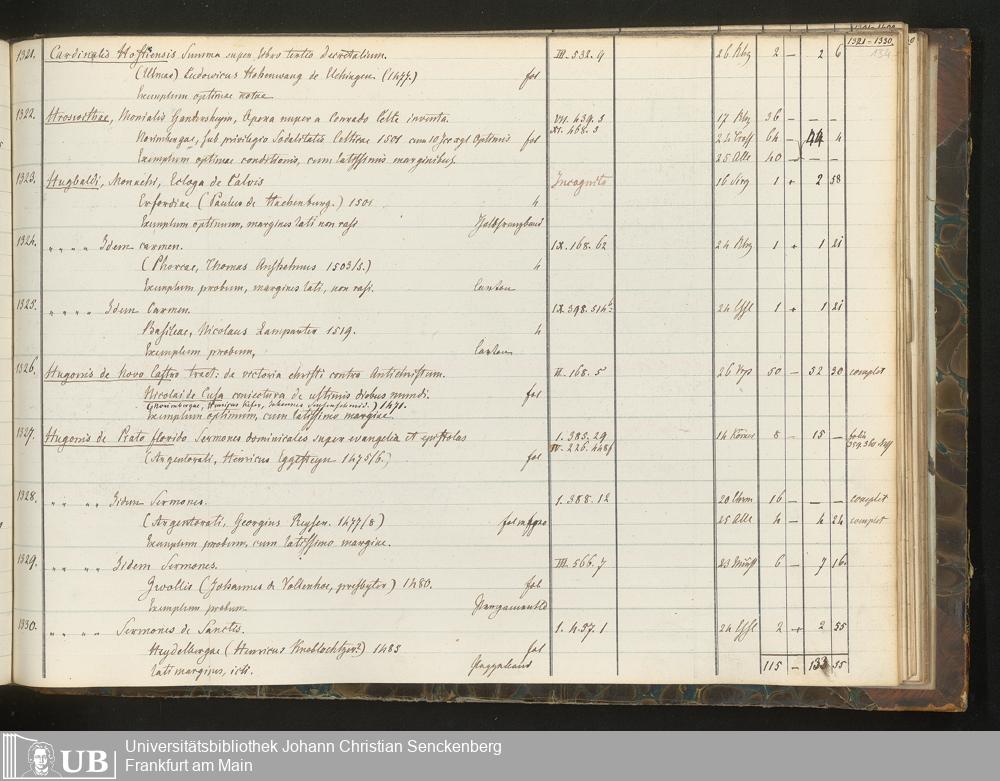 1321-1330
134
1321. Cardinalis Hostiensis Summa super libro tertio Decretalium. III. 532. 9 26 2 – 2 6
(Ulmae) Ludovicus Hohenwang de Elchingen. (1477.) fol
Exemplum optimae notae
1322. Hroswithae, Monialis Opera nuper a Conrado Celte inventa. VII. 439. 3 17 36 – – –
XI. 468. 3
Norimbergae, sub privilegio Sodalitatis Celticae 1501 cum optimis fol 24 64 – 44 4
Exemplum optimae conditionis, cum latissimis marginibus 25 40 – – –
1323. Hugbaldi, Monachi, Ecloga de Calvis Incognito 16 1 + 2 58
Erfordiae (Paulus de Hachenburg.) 1501 4
Exemplum optimum, margines lati non rasi
1324. " " " " Idem carmen. IX. 168. 62 24 1 + 1 21
(Phorcae, Thomas Anshelmus 1503/5.) 4
Exemplum probum, margines lati, non rasi. Carton
1325. " " " " Idem Carmen. IX. 398. 514 24 1 + 1 21
Basileae, Nicolaus Lamparter 1519. 4
Exemplum probum, Carton
1326. Hugonis de Novo Castro tract. de victoria christi contra Antichristum. II. 168. 5 26 50 – 52 30 complet
Nicolai de Cusa coniectura de ultimis diebus mundi. fol
1471.
Exemplum optimum, cum latissimo margine
1327. Hugonis de Prato florido Sermones dominicales super evangelia et epistolas 1. 385. 29 14 8 – 15 –
IV. 226. 448
(Argentorati, Heinricus Eggesteyn 1475/6.) fol
1328. " " " " Iidem Sermones. 1. 388. 12 20 16 – – – complet
(Argentorati, Georgius Reyser. 1477/8) 25 4 – 4 24 complet
Exemplum probum, cum latissimo margine.
1329. " " " " Iidem Sermones. III. 566. 7 23 6 – 7 16
Zwollis (Johannes de Vollenhoe, presbyter) 1480. fol
Exemplum probum Pergamentbd
1330. " " " " Sermones de Sanctis. 1. 437. 1 24 2 + 2 55
Heydelbergae (Henricus Knoblochtzer) 1485 fol
lati margines, icti. Pappband
115 – 133 55
UB
Universitätsbibliothek Johann Christian Senckenberg
Frankfurt am Main